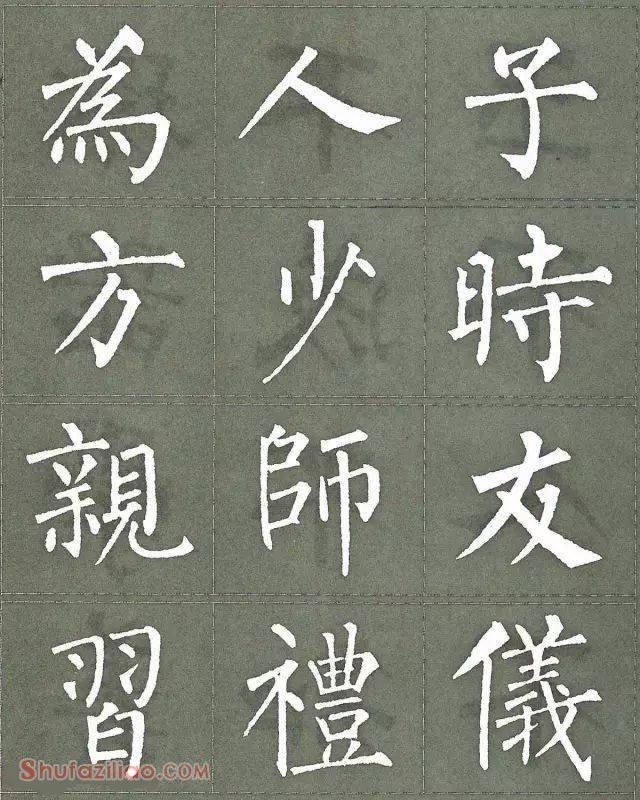 為人子
方少時
親師友
習禮儀
Shufaziliao.com